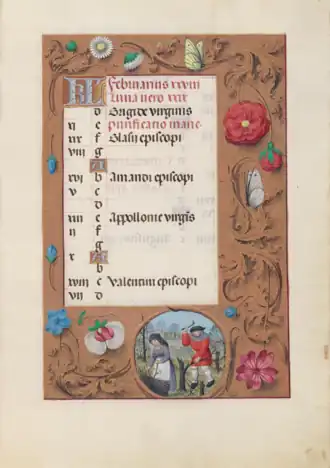 KL Februarius xxviii
Luna vero xxix
d Brigide virginis
xi e Purificatio marie
xix f Blasii episcopi
viii g
A
xvi b Amandi episcopi
v c
d
xiii e Appollonie virgīs
ii f
g
x A
b
xviii c Valentini episcopi
vii d